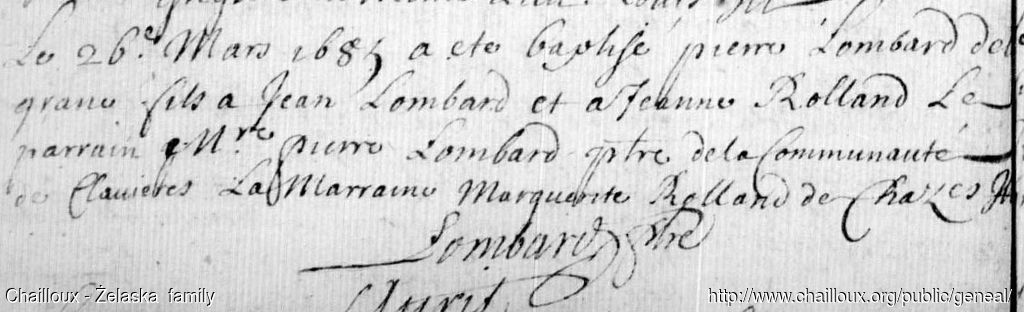 Le 26e. Mars 1685 a ete baptisé pierre Lombard de
grane fils a Jean Lombard et a Jeanne Rolland Le
parrain Mre. pierre Lombard ptre de la Communauté
de Clavieres La Marraine Marguerite Rolland de Chazes
Lombard ptre
Chailloux - Żelaska family
http://www.chailloux.org/public/geneal/